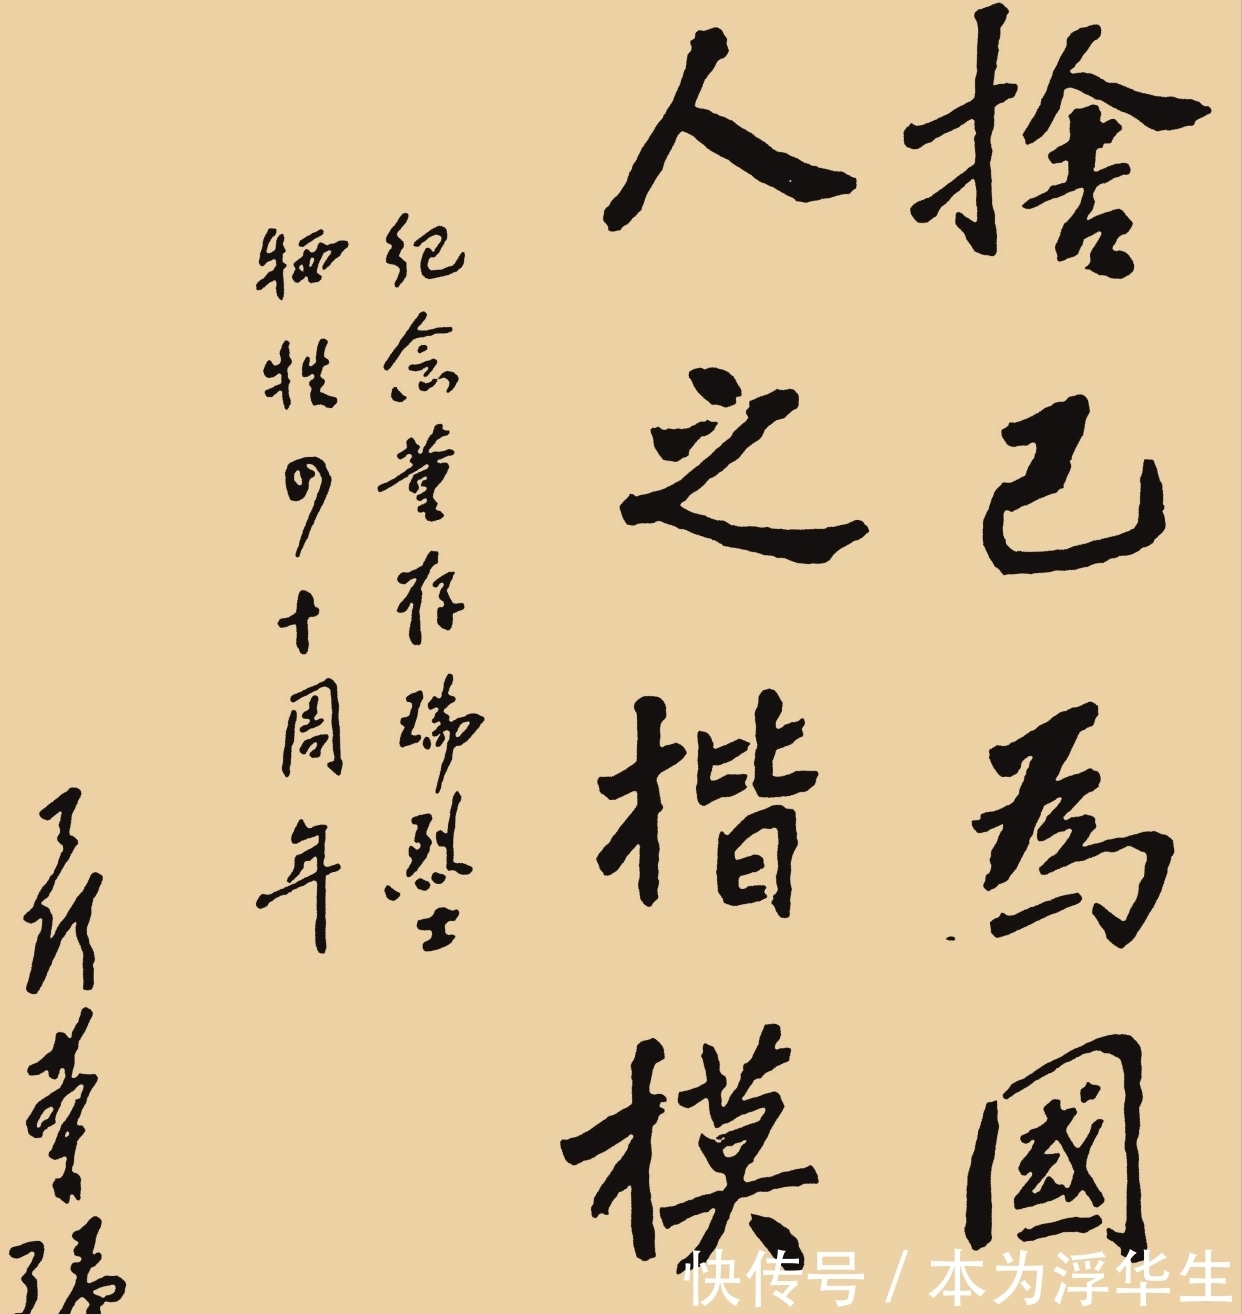 捨己為國
人之楷模
紀念董存瑞烈士
牺牲四十周年
快传号 / 本为浮华生